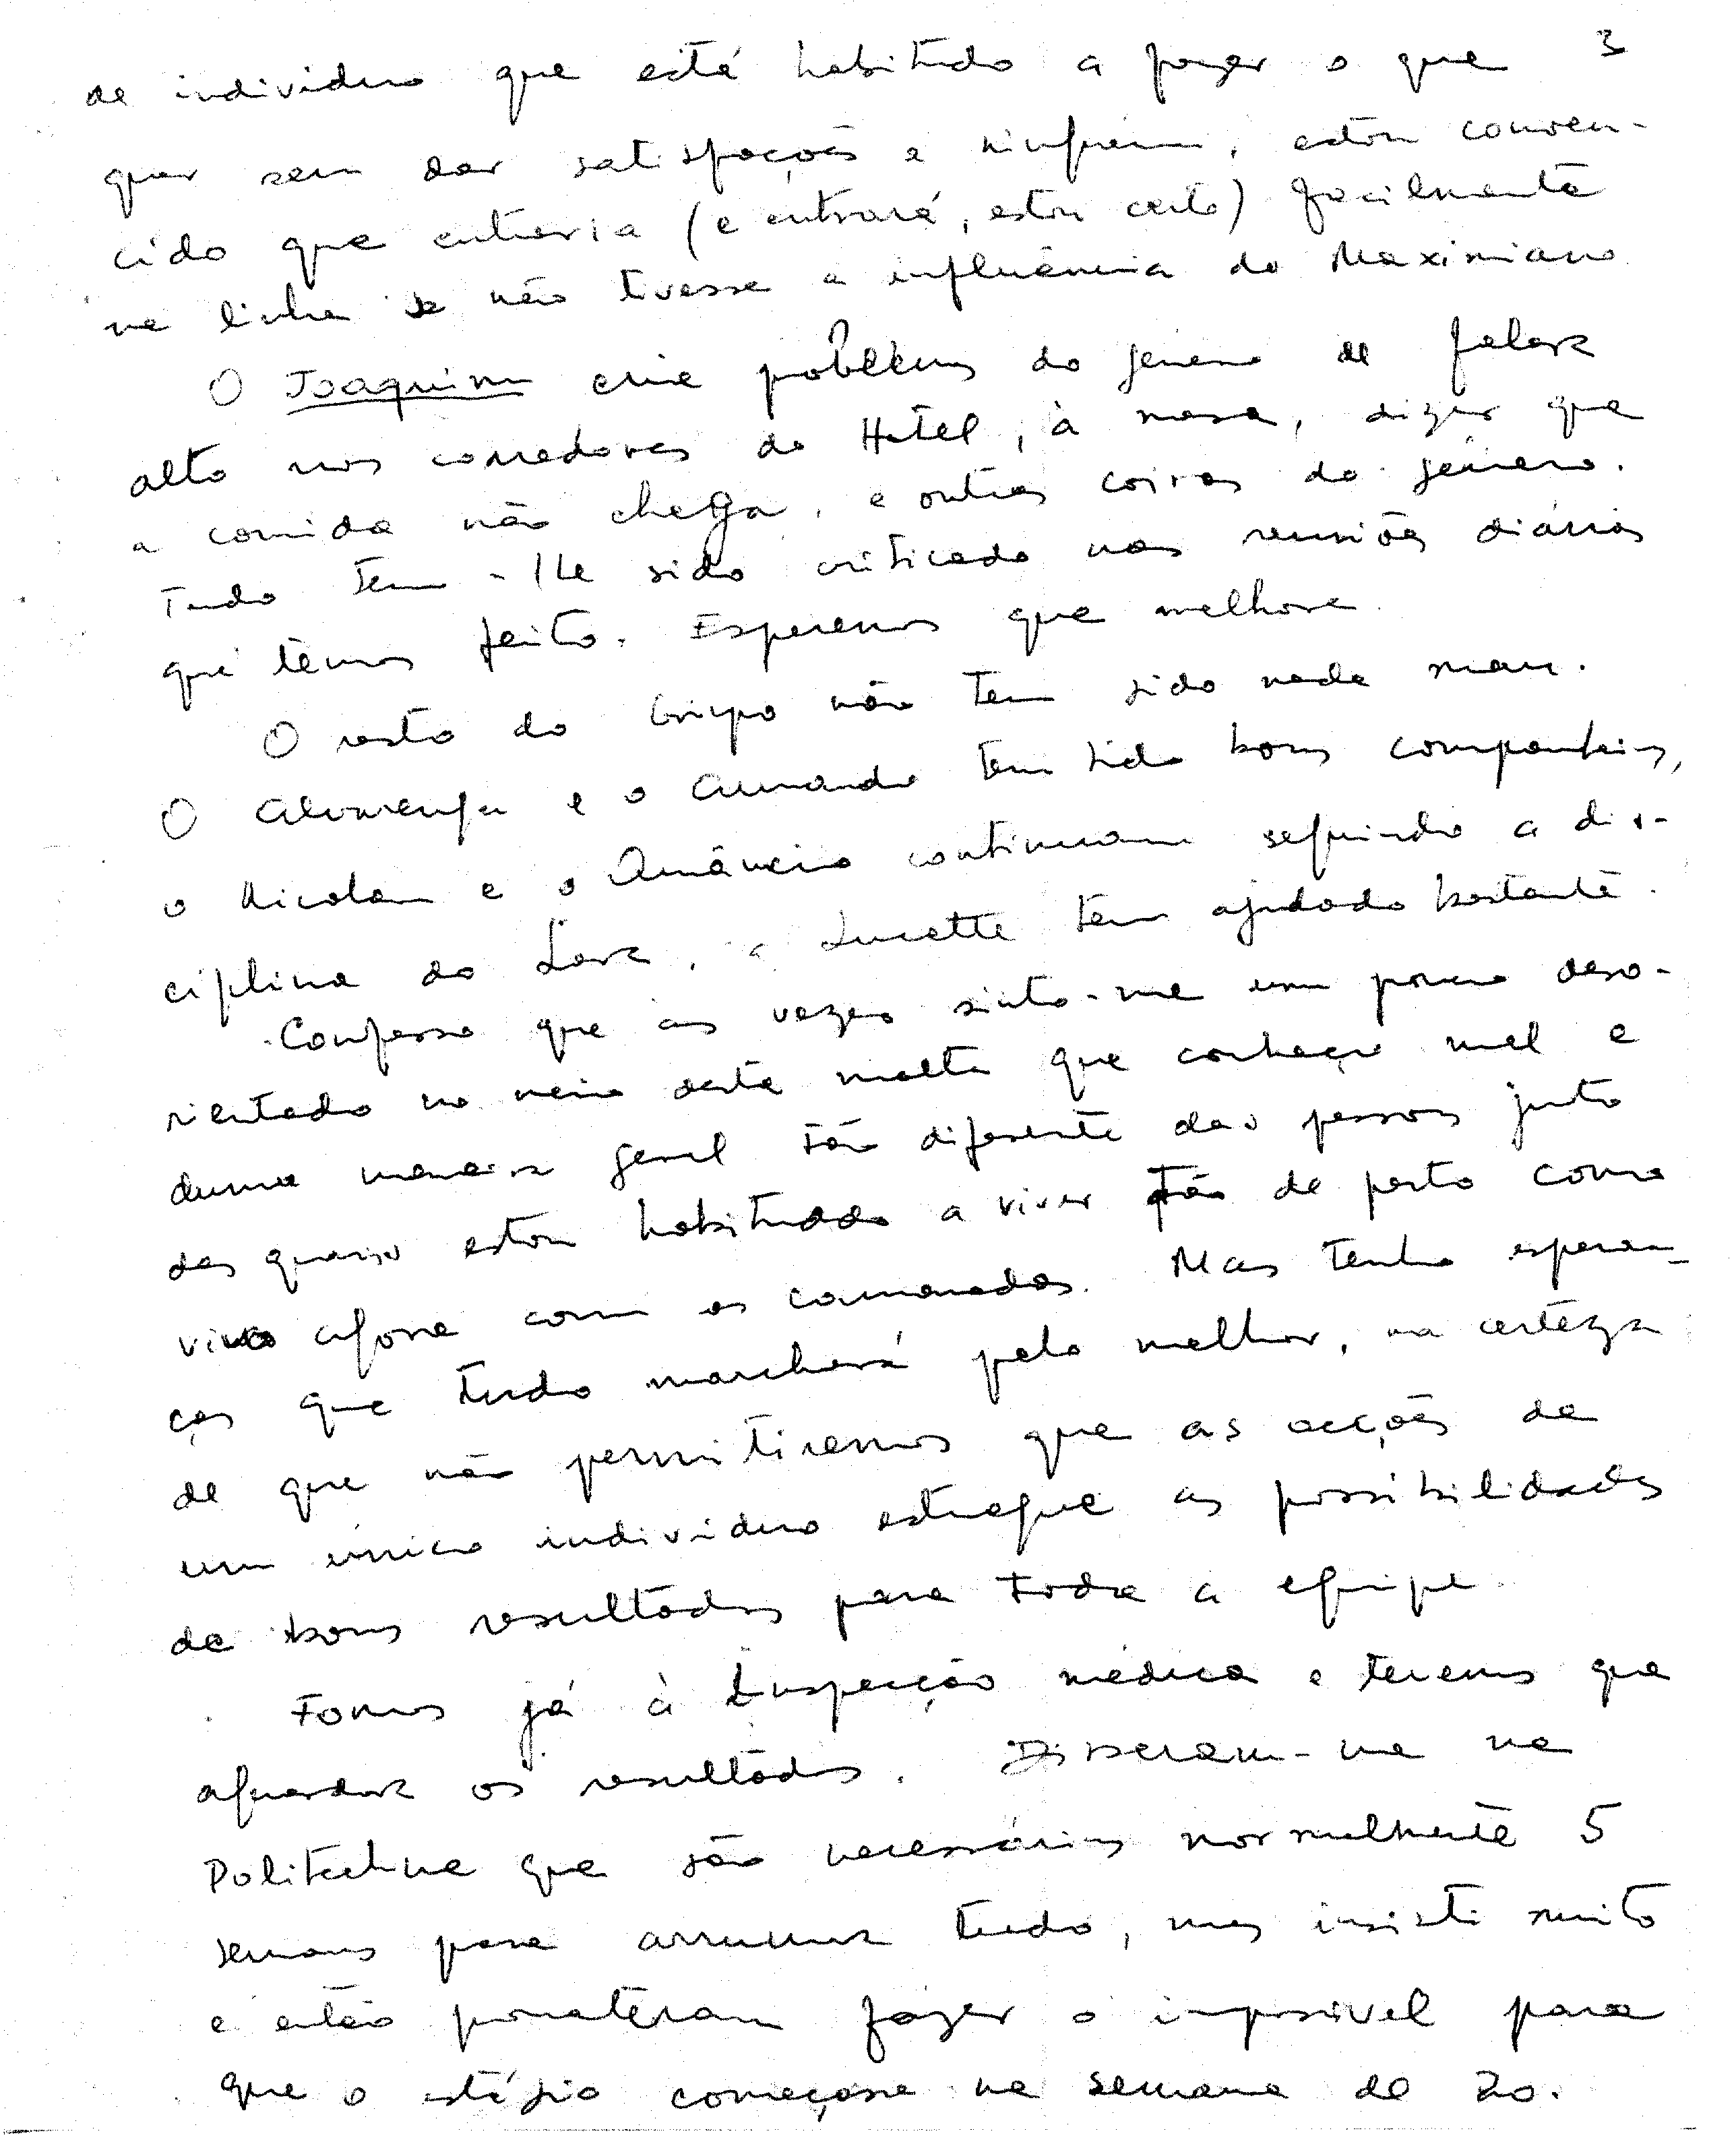 3
de individuo que está habituado a fazer o que
quer sem dar satisfações a ninguém, estou conven-
cido que entraria (e entrará, estou certo) facilmente
na linha se não tivesse a influência do Maximiano
O Joaquim cria problemas do género de falar
alto nos corredores do Hotel, à mesa, dizer que
a comida não chega, e outras coisas do género.
Tudo tem-lhe sido criticado nas reuniões diárias
que temos feito. Esperemos que melhore.
O resto do Grupo não tem sido nada mau.
O e o Armando tem sido bons companheiros,
o Nicolau e o Amâncio continuam seguindo a dis-
ciplina do Lara, a Lucette tem ajudado bastante.
Confesso que às vezes sinto-me um pouco deso-
rientado no meio desta malta que conheço mal e
duma maneira geral tão diferente das pessoas junto
das quais estou habituado a viver tão de perto como
vivo agora com os camaradas. Mas tenho esperan-
ças que tudo marchará pelo melhor, na certeza
de que não permitiremos que as acções de
um único individuo estrague as possibilidades
de bons resultados para toda a equipe.
Fomos já à Inspecção médica e teremos que
aguardar os resultados. Disseram-me na
Politechna que são necessárias normalmente 5
semanas para arrumar tudo, mas insisti muito
e então prometeram fazer o impossível para
que o estágio começasse na semana de 20.